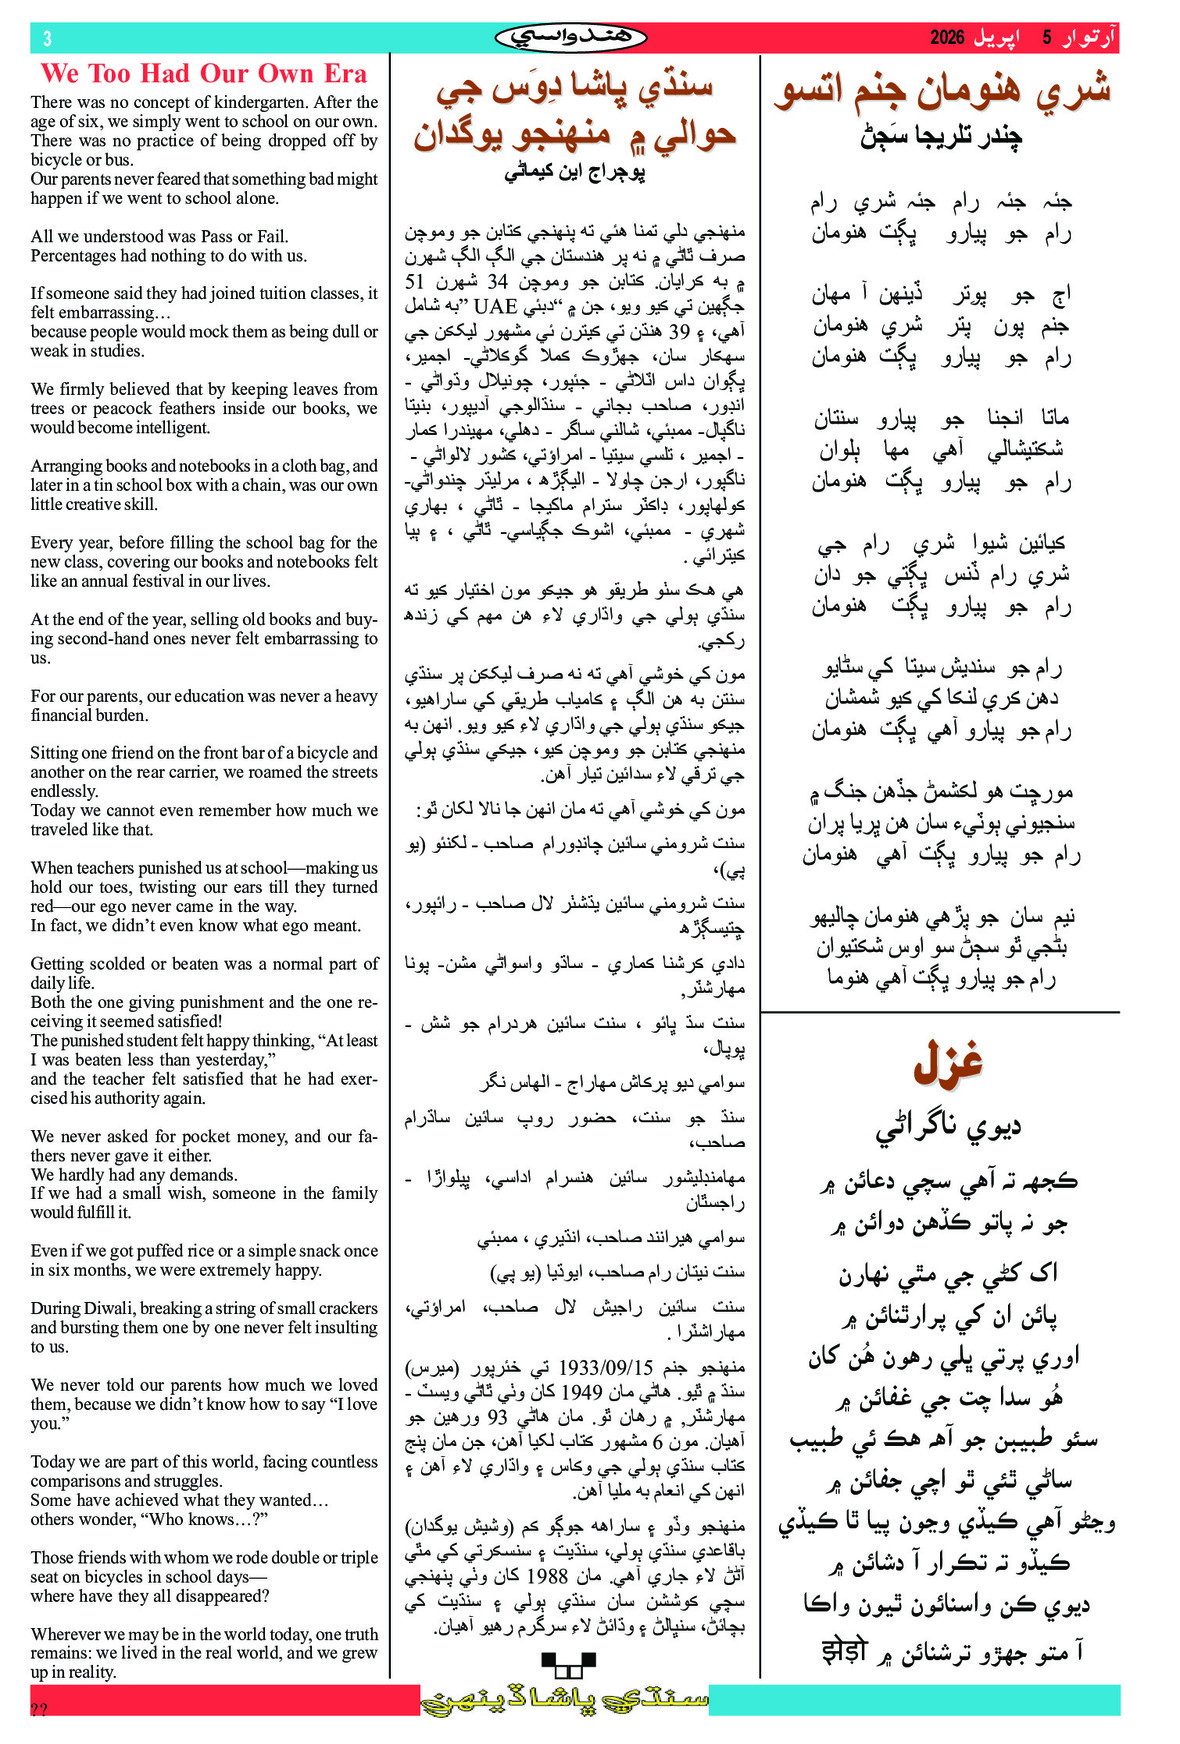 3
هندواسي
آرتوار 5 اپريل 2026
We Too Had Our Own Era
There was no concept of kindergarten. After the
age of six, we simply went to school on our own.
There was no practice of being dropped off by
bicycle or bus.
Our parents never feared that something bad might
happen if we went to school alone.
All we understood was Pass or Fail.
Percentages had nothing to do with us.
If someone said they had joined tuition classes, it
felt embarrassing…
because people would mock them as being dull or
weak in studies.
We firmly believed that by keeping leaves from
trees or peacock feathers inside our books, we
would become intelligent.
Arranging books and notebooks in a cloth bag, and
later in a tin school box with a chain, was our own
little creative skill.
Every year, before filling the school bag for the
new class, covering our books and notebooks felt
like an annual festival in our lives.
At the end of the year, selling old books and buy-
ing second-hand ones never felt embarrassing to
us.
For our parents, our education was never a heavy
financial burden.
Sitting one friend on the front bar of a bicycle and
another on the rear carrier, we roamed the streets
endlessly.
Today we cannot even remember how much we
traveled like that.
When teachers punished us at school—making us
hold our toes, twisting our ears till they turned
red—our ego never came in the way.
In fact, we didn’t even know what ego meant.
Getting scolded or beaten was a normal part of
daily life.
Both the one giving punishment and the one re-
ceiving it seemed satisfied!
The punished student felt happy thinking, “At least
I was beaten less than yesterday,”
and the teacher felt satisfied that he had exer-
cised his authority again.
We never asked for pocket money, and our fa-
thers never gave it either.
We hardly had any demands.
If we had a small wish, someone in the family
would fulfill it.
Even if we got puffed rice or a simple snack once
in six months, we were extremely happy.
During Diwali, breaking a string of small crackers
and bursting them one by one never felt insulting
to us.
We never told our parents how much we loved
them, because we didn’t know how to say “I love
you.”
Today we are part of this world, facing countless
comparisons and struggles.
Some have achieved what they wanted…
others wonder, “Who knows…?”
Those friends with whom we rode double or triple
seat on bicycles in school days—
where have they all disappeared?
Wherever we may be in the world today, one truth
remains: we lived in the real world, and we grew
up in reality.
سنڌي ڀاشا دِوَس جي
حوالي ۾ منهنجو يوگدان
ڀوڄراج اين کيماڻي
منهنجي دلي تمنا هئي ته پنهنجي ڪتابن جو وموچن
صرف ٿاڻي ۾ نه پر هندستان جي الڳ الڳ شهرن
۾ به ڪرايان. ڪتابن جو وموچن 34 شهرن 51
جڳهين تي ڪيو ويو، جن ۾ “دبئي UAE ”به شامل
آهي، ۽ 39 هنڌن تي ڪيترن ئي مشهور ليککن جي
سهڪار سان، جهڙوڪ ڪملا گوڪلاڻي- اجمير،
ڀڳوان داس اٽلاڻي - جئپور، چونيلال وڌواڻي -
اندور، صاحب بجاني - سنڌالوجي آديپور، بنيتا
ناگپال- ممبئي، شالني ساگر - دهلي، مهيندرا ڪمار
- اجمير ، تلسي سيتيا - امراؤتي، ڪشور لالواڻي -
ناگپور، ارجن چاولا - اليڳڙھ ، مرليڌر چندواڻي-
ڪولهاپور، ڊاڪٽر سترام ماکيجا - ٿاڻي ، بهاري
شهري - ممبئي، اشوڪ جڳياسي- ٿاڻي ، ۽ ٻيا
ڪيترائي .
هي هڪ سٺو طريقو هو جيڪو مون اختيار ڪيو ته
سنڌي ٻولي جي واڌاري لاءِ هن مهم کي زندھ
رکجي.
مون کي خوشي آهي ته نه صرف ليککن پر سنڌي
سنتن به هن الڳ ۽ ڪامياب طريقي کي ساراهيو،
جيڪو سنڌي ٻولي جي واڌاري لاءِ ڪيو ويو. انهن به
منهنجي ڪتابن جو وموچن ڪيو، جيڪي سنڌي ٻولي
جي ترقي لاءِ سدائين تيار آهن.
مون کي خوشي آهي ته مان انهن جا نالا لکان ٿو:
سنت شرومني سائين چانڊورام صاحب - لکنئو (يو
پي)،
سنت شرومني سائين يڌشٽر لال صاحب - رائپور،
ڇتيسڳڙھ
دادي ڪرشنا ڪماري - ساڌو واسواڻي مشن- پونا
مهارشٽر,
سنت سڌ ڀائو ، سنت سائين هردرام جو شش -
ڀوپال،
سوامي ديو پرڪاش مهاراج - الهاس نگر
سنڌ جو سنت، حضور روپ سائين ساڌرام
صاحب،
مهامنڊليشور سائين هنسرام اداسي، ڀيلواڙا -
راجسٿان
سوامي هيرانند صاحب، انڌيري ، ممبئي
سنت نيتان رام صاحب، ايوڌيا (يو پي)
سنت سائين راجيش لال صاحب، امراؤتي،
مهاراشٽرا .
منهنجو جنم 1933/09/15 تي خئرپور (ميرس)
سنڌ ۾ ٿيو. هاڻي مان 1949 کان وٺي ٿاڻي ويسٽ -
مهارشٽر, ۾ رهان ٿو. مان هاڻي 93 ورهين جو
آهيان. مون 6 مشهور ڪتاب لکيا آهن، جن مان پنج
ڪتاب سنڌي ٻولي جي وڪاس ۽ واڌاري لاءِ آهن ۽
انهن کي انعام به مليا آهن.
منهنجو وڏو ۽ ساراهه جوڳو ڪم (وشيش يوگدان)
باقاعدي سنڌي ٻولي، سنڌيت ۽ سنسڪرتي کي مٿي
آڻڻ لاءِ جاري آهي. مان 1988 کان وٺي پنهنجي
سچي ڪوششن سان سنڌي ٻولي ۽ سنڌيت کي
بچائڻ، سنڀالڻ ۽ وڌائڻ لاءِ سرگرم رهيو آهيان.
شري هنومان جنم اتسو
چندر تلريجا سَڄڻ
جئہ جئہ رام جئہ شري رام
رام جو پيارو ڀڳت هنومان
اڄ جو پوتر ڏينهن آ مهان
جنم پون پتر شري هنومان
رام جو پيارو ڀڳت هنومان
ماتا انجنا جو پيارو سنتان
شڪتيشالي آهي مها ٻلوان
رام جو پيارو ڀڳت هنومان
ڪيائين شيوا شري رام جي
شري رام ڏنس ڀڳتي جو دان
رام جو پيارو ڀڳت هنومان
رام جو سنديش سيتا کي سڻايو
دهن ڪري لنڪا کي ڪيو شمشان
رام جو پيارو آهي ڀڳت هنومان
مورڇت هو لکشمڻ جڏهن جنگ ۾
سنجيوني ٻوٽيءَ سان هن ڀريا پران
رام جو پيارو ڀڳت آهي هنومان
نيم سان جو پڙهي هنومان چاليهو
بڻجي ٿو سڄڻ سو اوس شڪتيوان
رام جو پيارو ڀڳت آهي هنوما
غزل
ديوي ناگراڻي
ڪجهہ تہ آهي سچي دعائن ۾
جو نہ پاتو ڪڏهن دوائن ۾
اک کڻي جي مٿي نهارن
پائن ان کي پرارٿنائن ۾
اوري پرتي ڀلي رهون هُن کان
هُو سدا چت جي غفائن ۾
سئو طبيبن جو آهہ هڪ ئي طبيب
ساٿي ٿئي ٿو اچي جفائن ۾
وڃڻو آهي ڪيڏي وڃون پيا ٿا ڪيڏي
ڪيڏو تہ تڪرار آ دشائن ۾
ديوي ڪن واسنائون ٿيون واڪا
آ متو جهڙو ترشنائن ۾ झेड़ो
??
سنڌي ڀاشا ڏينهن